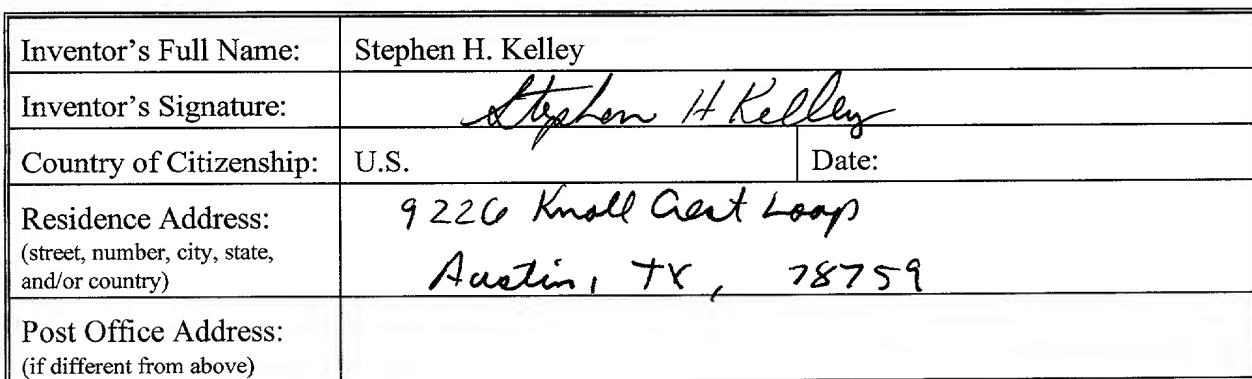 Inventor's Full Name: Stephen H. Kelley
Inventor's Signature: Stephen H Kelley
Country of Citizenship: U.S. Date:
Residence Address: 9226 Knoll Crest Loop
(street, number, city, state,
and/or country) Austin, TX, 78759
Post Office Address:
(if different from above)